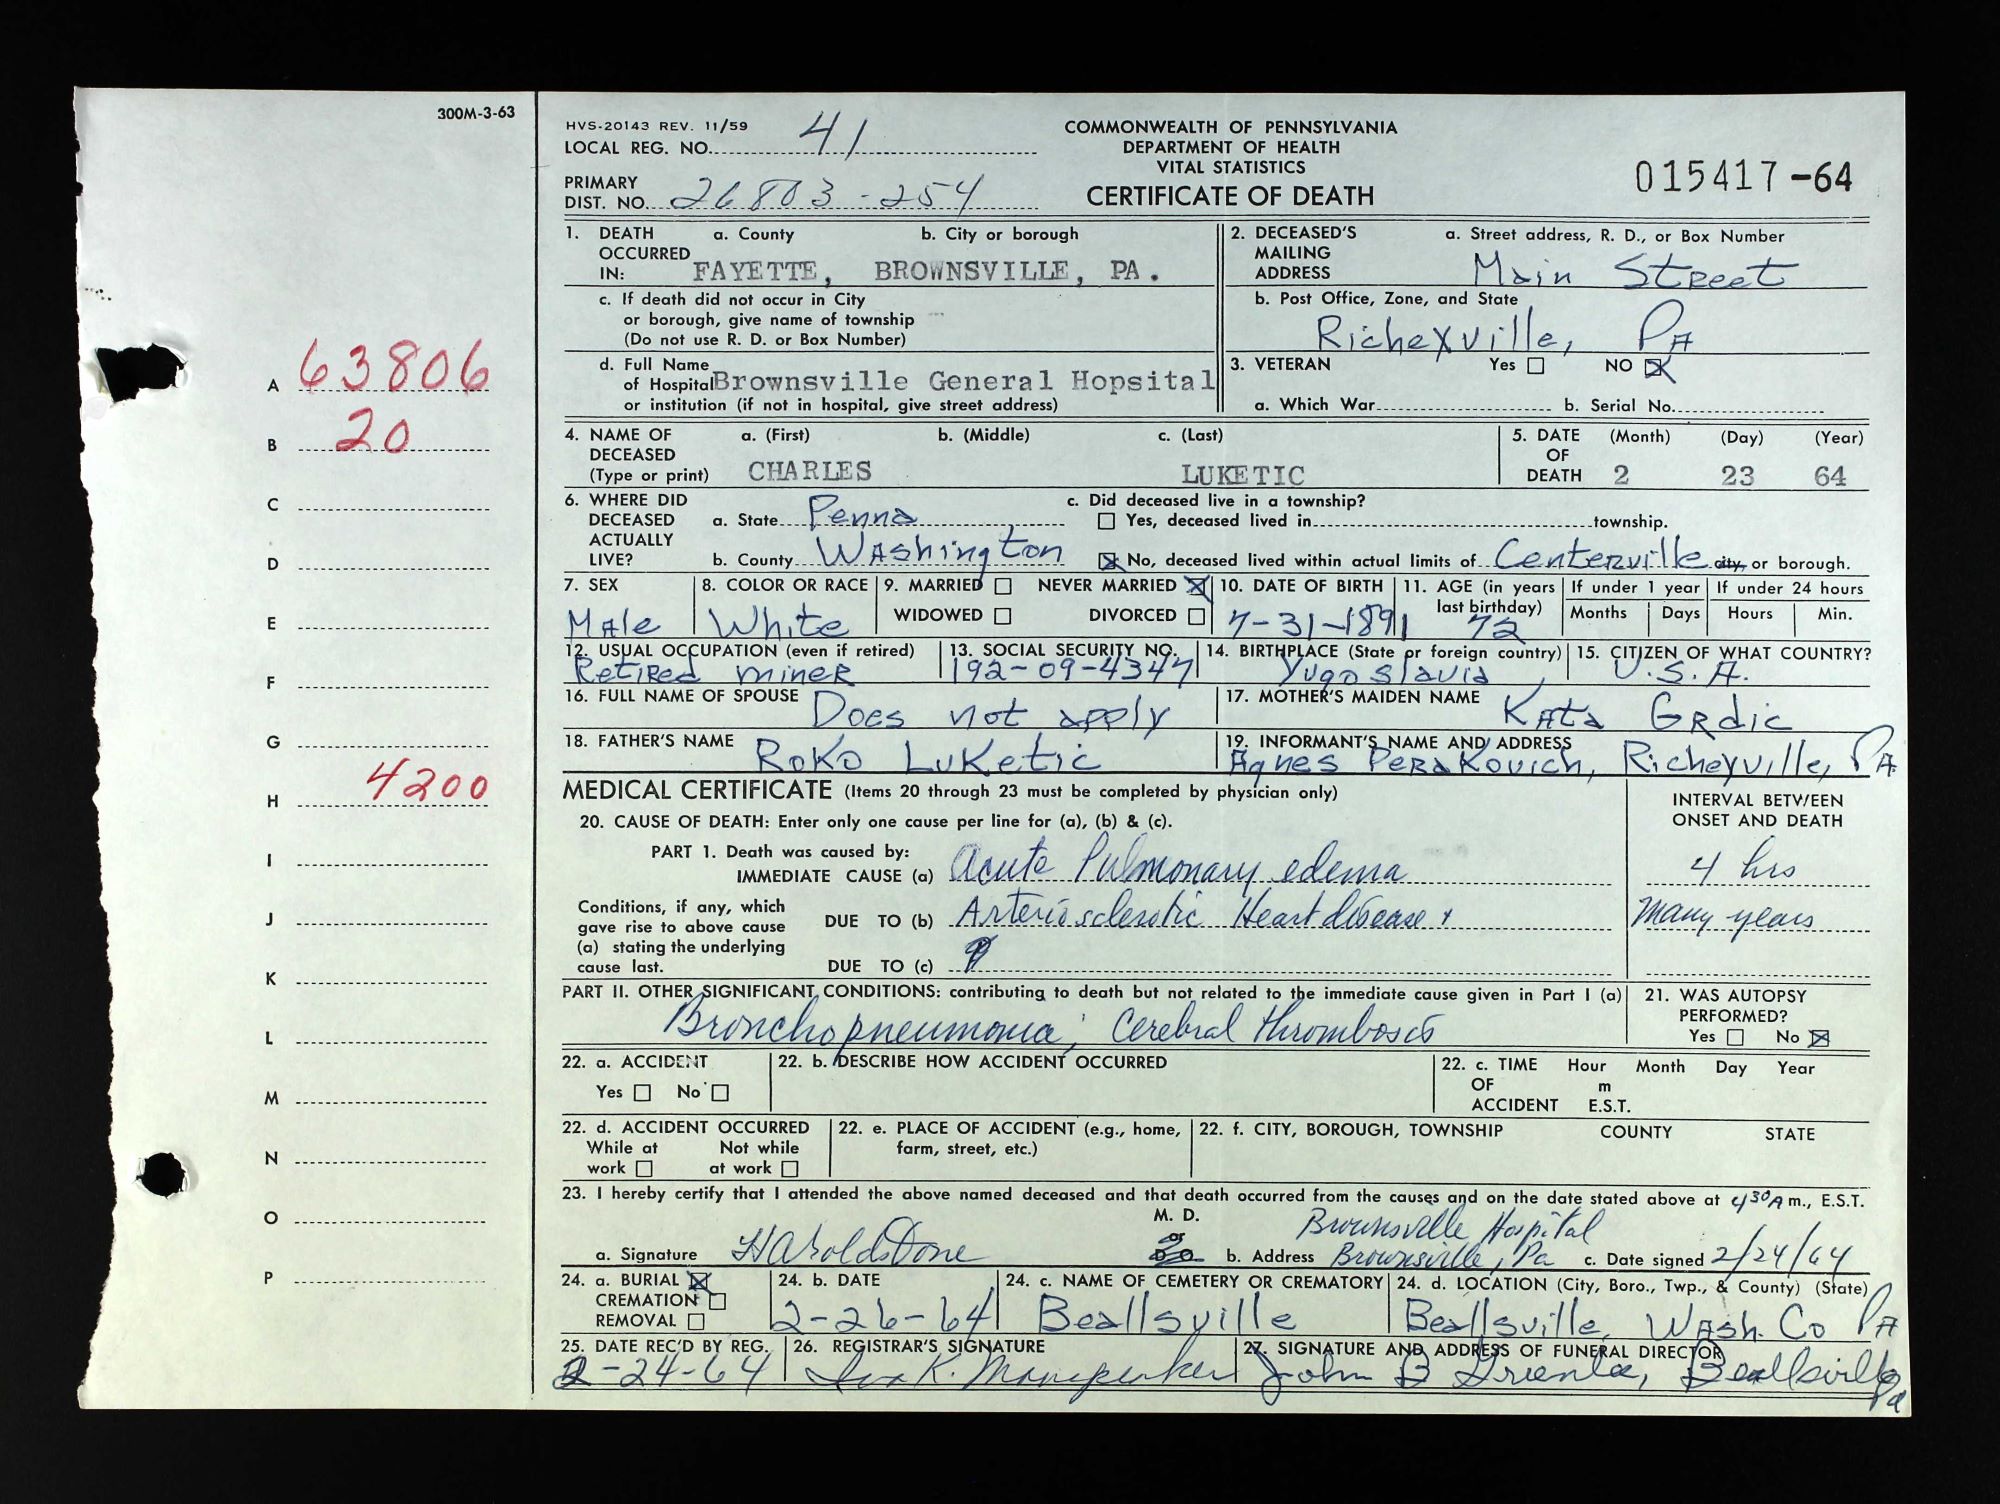 300M-3-63
HVS-20143 REV. 11/59
LOCAL REG. NO. 41
PRIMARY
DIST. NO. 26803-254
COMMONWEALTH OF PENNSYLVANIA
DEPARTMENT OF HEALTH
VITAL STATISTICS
CERTIFICATE OF DEATH
015417-64
A 63806
B 20
C
D
E
F
G
H 4200
I
J
K
L
M
N
O
P
1. DEATH OCCURRED IN: a. County b. City or borough
FAYETTE, BROWNSVILLE, PA.
c. If death did not occur in City
or borough, give name of township
(Do not use R. D. or Box Number)
d. Full Name
of Hospital Brownsville General Hopsital
or institution (if not in hospital, give street address)
2. DECEASED'S MAILING ADDRESS a. Street address, R. D., or Box Number
Main Street
b. Post Office, Zone, and State
Richeyville, PA
3. VETERAN Yes NO X
a. Which War b. Serial No.
4. NAME OF DECEASED (Type or print) a. (First) b. (Middle) c. (Last)
CHARLES LUKETIC
5. DATE OF DEATH (Month) (Day) (Year)
2 23 64
6. WHERE DID DECEASED ACTUALLY LIVE?
a. State Penna
b. County Washington
c. Did deceased live in a township?
Yes, deceased lived in township.
X No, deceased lived within actual limits of Centerville city or borough.
7. SEX
Male
8. COLOR OR RACE
White
9. MARRIED NEVER MARRIED X
WIDOWED DIVORCED
10. DATE OF BIRTH
7-31-1891
11. AGE (in years last birthday)
72
If under 1 year
Months Days
If under 24 hours
Hours Min.
12. USUAL OCCUPATION (even if retired)
Retired miner
13. SOCIAL SECURITY NO.
192-09-4347
14. BIRTHPLACE (State or foreign country)
Yugoslavia
15. CITIZEN OF WHAT COUNTRY?
U.S.A.
16. FULL NAME OF SPOUSE Does not apply
17. MOTHER'S MAIDEN NAME Kata Grdic
18. FATHER'S NAME Roko Luketic
19. INFORMANT'S NAME AND ADDRESS
Agnes Perakovich, Richeyville, PA
MEDICAL CERTIFICATE (Items 20 through 23 must be completed by physician only)
20. CAUSE OF DEATH: Enter only one cause per line for (a), (b) & (c).
INTERVAL BETWEEN
ONSET AND DEATH
PART 1. Death was caused by:
IMMEDIATE CAUSE (a) Acute Pulmonary edema 4 hrs
Conditions, if any, which
gave rise to above cause
(a) stating the underlying
cause last.
DUE TO (b) Arteriosclerotic Heart disease many years
DUE TO (c)
PART II. OTHER SIGNIFICANT CONDITIONS: contributing to death but not related to the immediate cause given in Part I (a)
Bronchopneumonia; Cerebral thrombosis
21. WAS AUTOPSY
PERFORMED?
Yes No X
22. a. ACCIDENT
Yes No
22. b. DESCRIBE HOW ACCIDENT OCCURRED
22. c. TIME OF ACCIDENT Hour Month Day Year
m
E.S.T.
22. d. ACCIDENT OCCURRED
While at work Not while at work
22. e. PLACE OF ACCIDENT (e.g., home,
farm, street, etc.)
22. f. CITY, BOROUGH, TOWNSHIP COUNTY STATE
23. I hereby certify that I attended the above named deceased and that death occurred from the causes and on the date stated above at 4 30 A m., E.S.T.
a. Signature Harold Stone M. D. or D O
b. Address Brownsville Hospital
Brownsville, Pa
c. Date signed 2/24/64
24. a. BURIAL X
CREMATION
REMOVAL
24. b. DATE
2-26-64
24. c. NAME OF CEMETERY OR CREMATORY
Beallsville
24. d. LOCATION (City, Boro., Twp., & County) (State)
Beallsville, Wash. Co PA
25. DATE REC'D BY REG.
2-24-64
26. REGISTRAR'S SIGNATURE
27. SIGNATURE AND ADDRESS OF FUNERAL DIRECTOR
John B Greenlee, Beallsville Pa